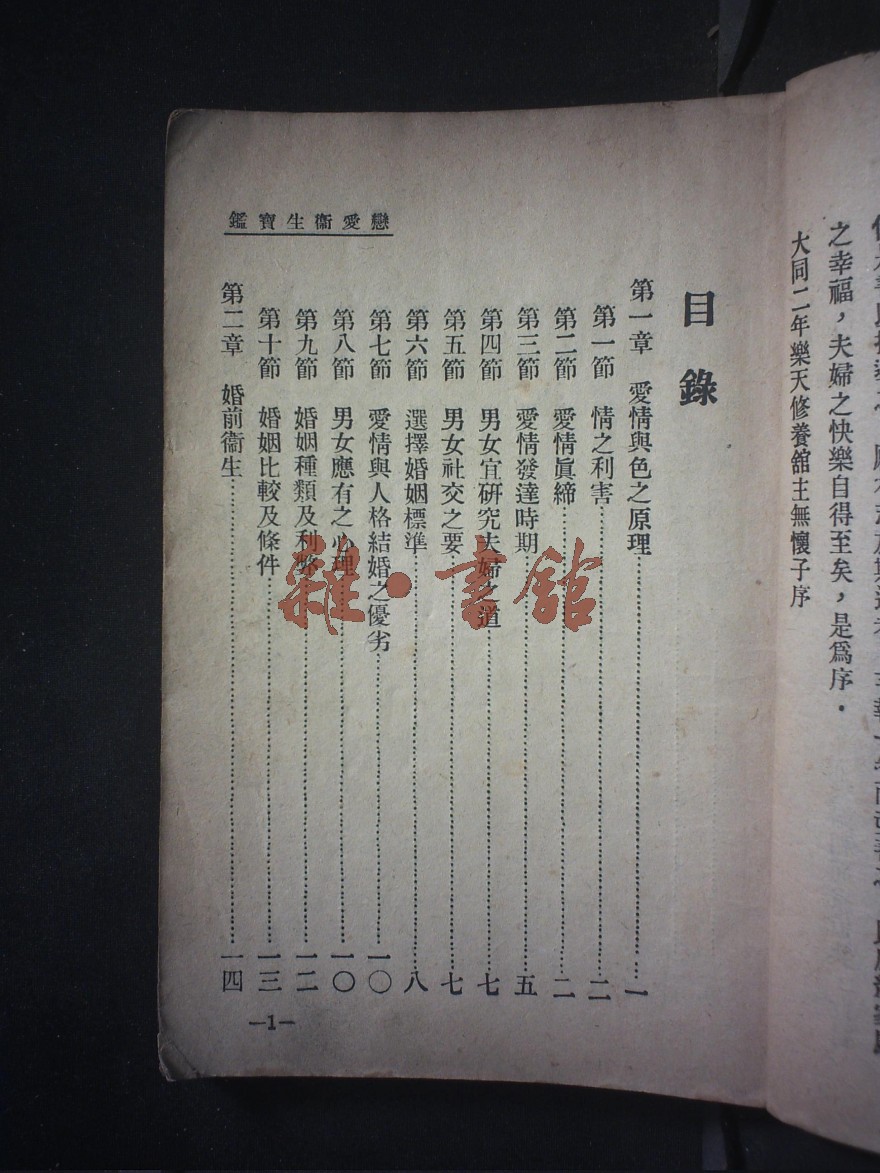 之幸福，夫婦之快樂自得至矣，是爲序．
大同二年樂天修養舘主無懷子序
戀愛衞生寶鑑
目錄
第一章　愛情與色之原理…一
第一節　情之利害…二
第二節　愛情眞締…二
第三節　愛情發達時期…五
第四節　男女宜研究夫婦之道…七
第五節　男女社交之要…七
第六節　選擇婚姻標準…八
第七節　愛情與人格結婚之優劣…一〇
第八節　男女應有之心理…一〇
第九節　婚姻種類及利弊…一二
第十節　婚姻比較及條件…一三
第二章　婚前衞生…一四
—1—
雜·書館